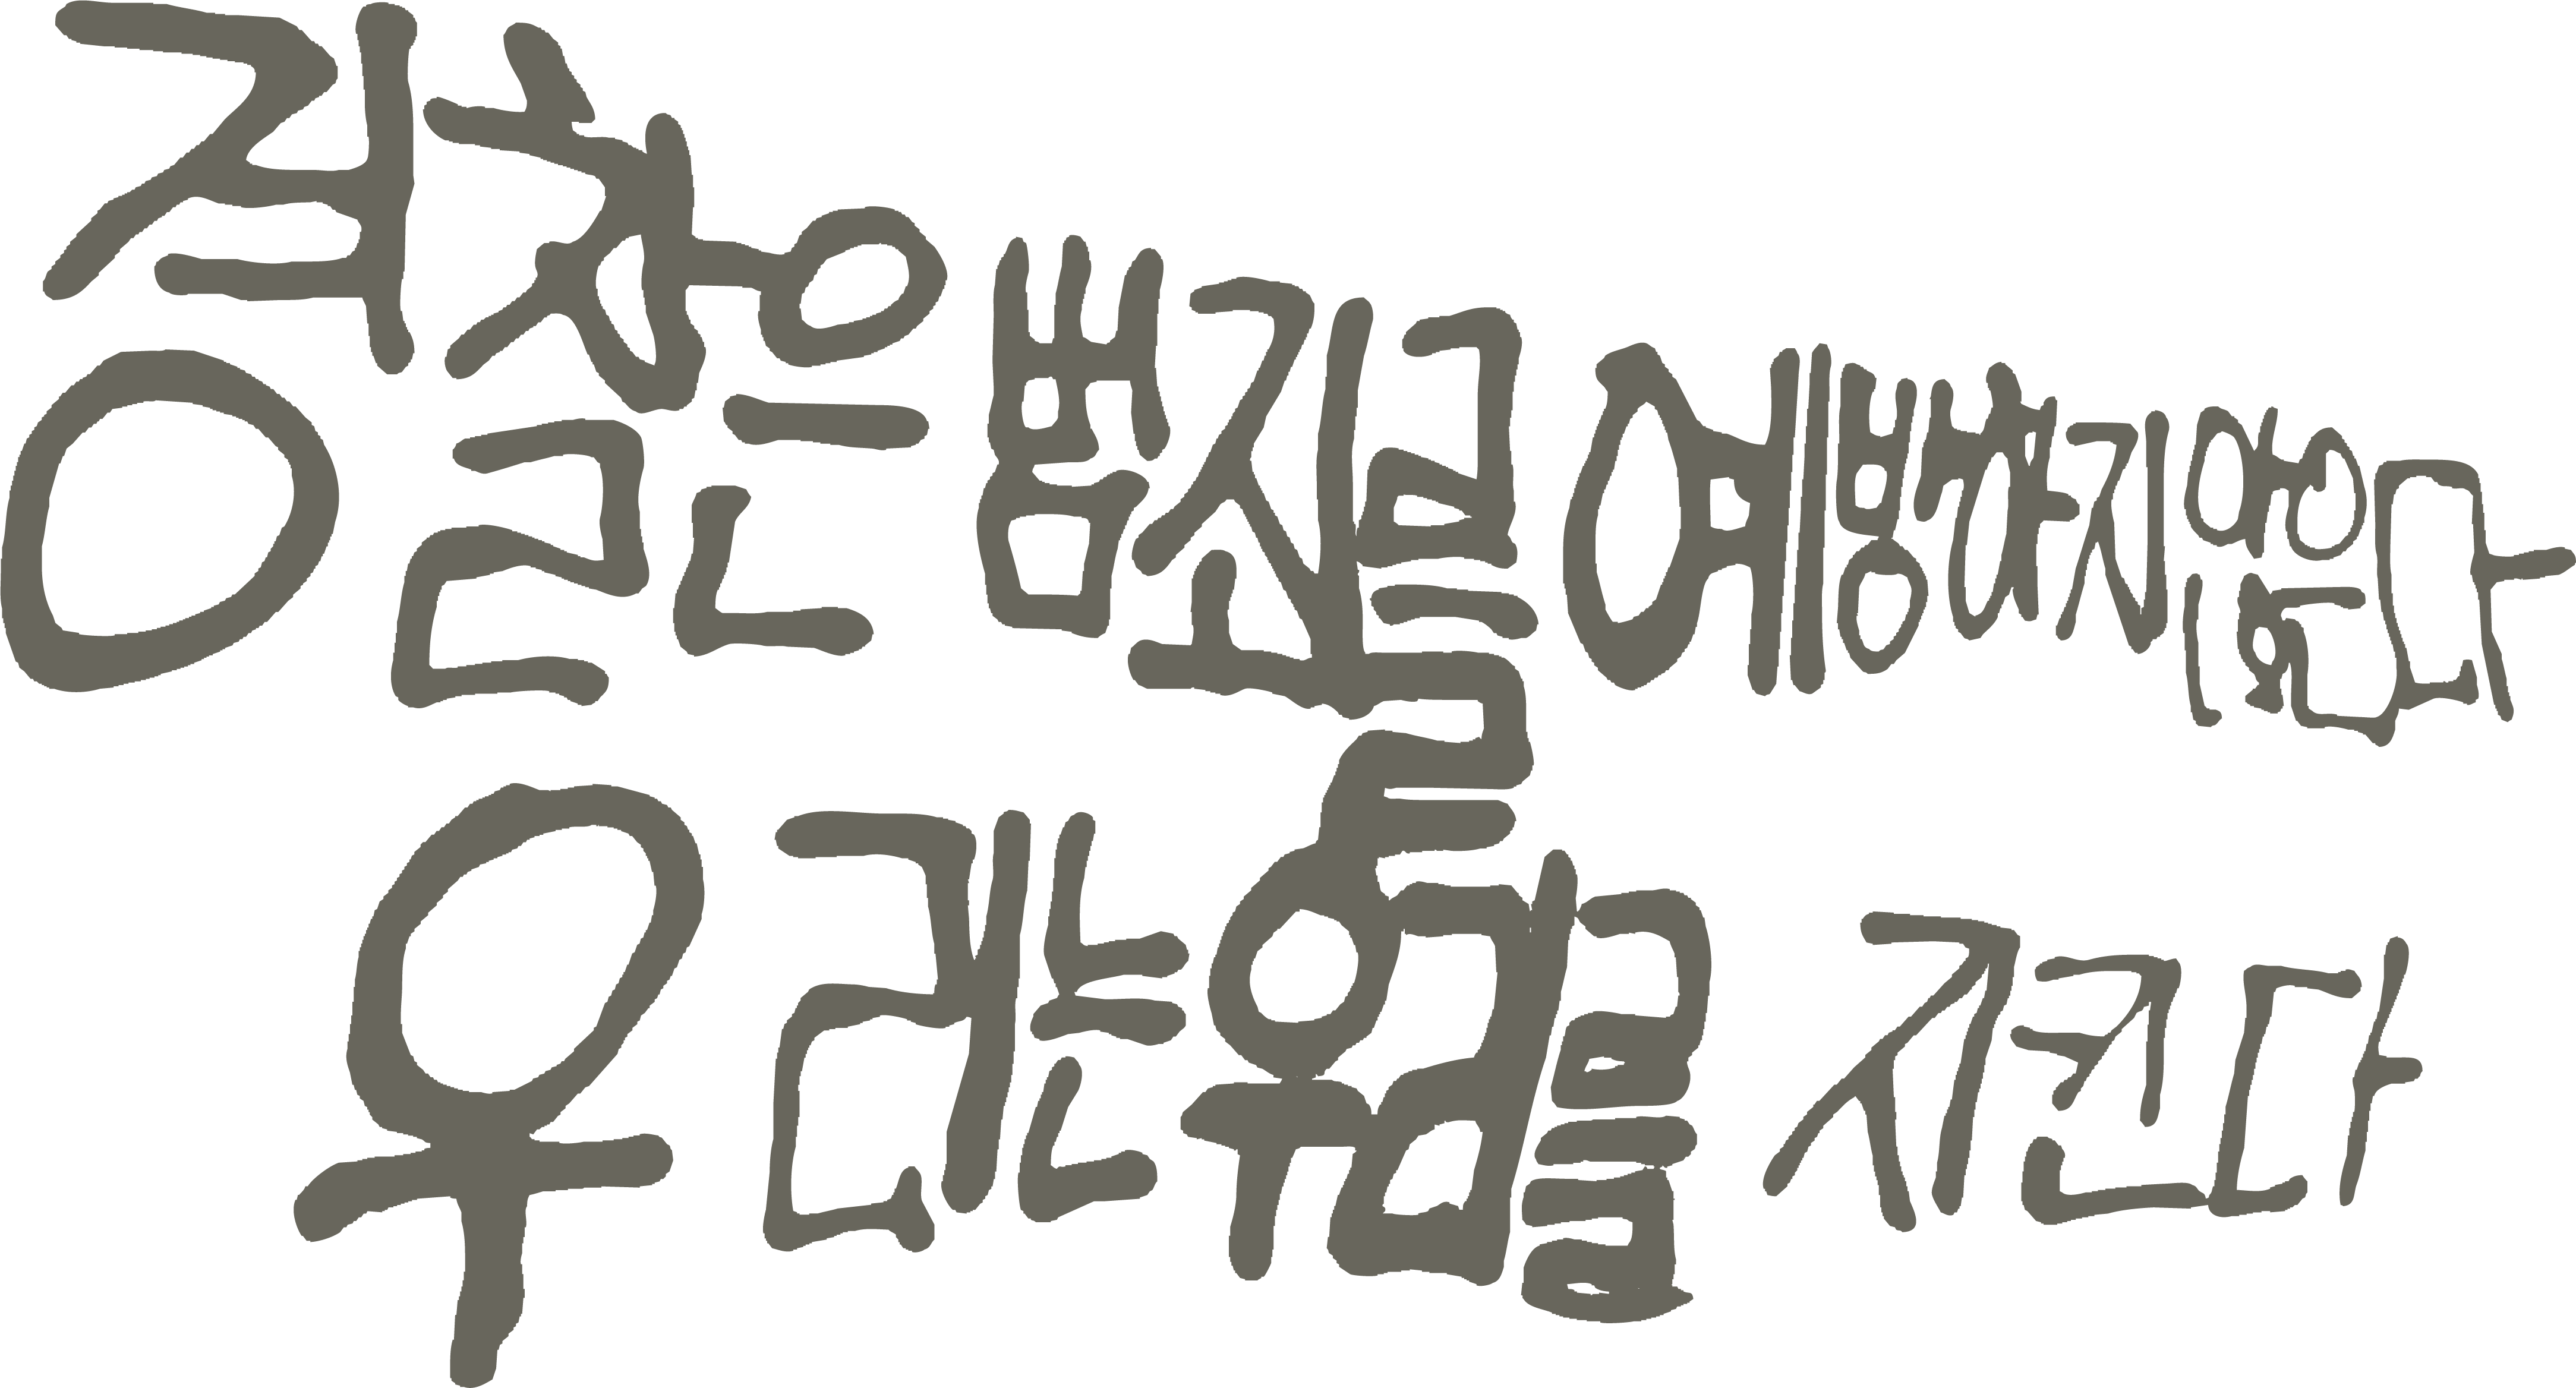 경찰은 범죄를 예방하지 않는다
우리는 우리를 지킨다